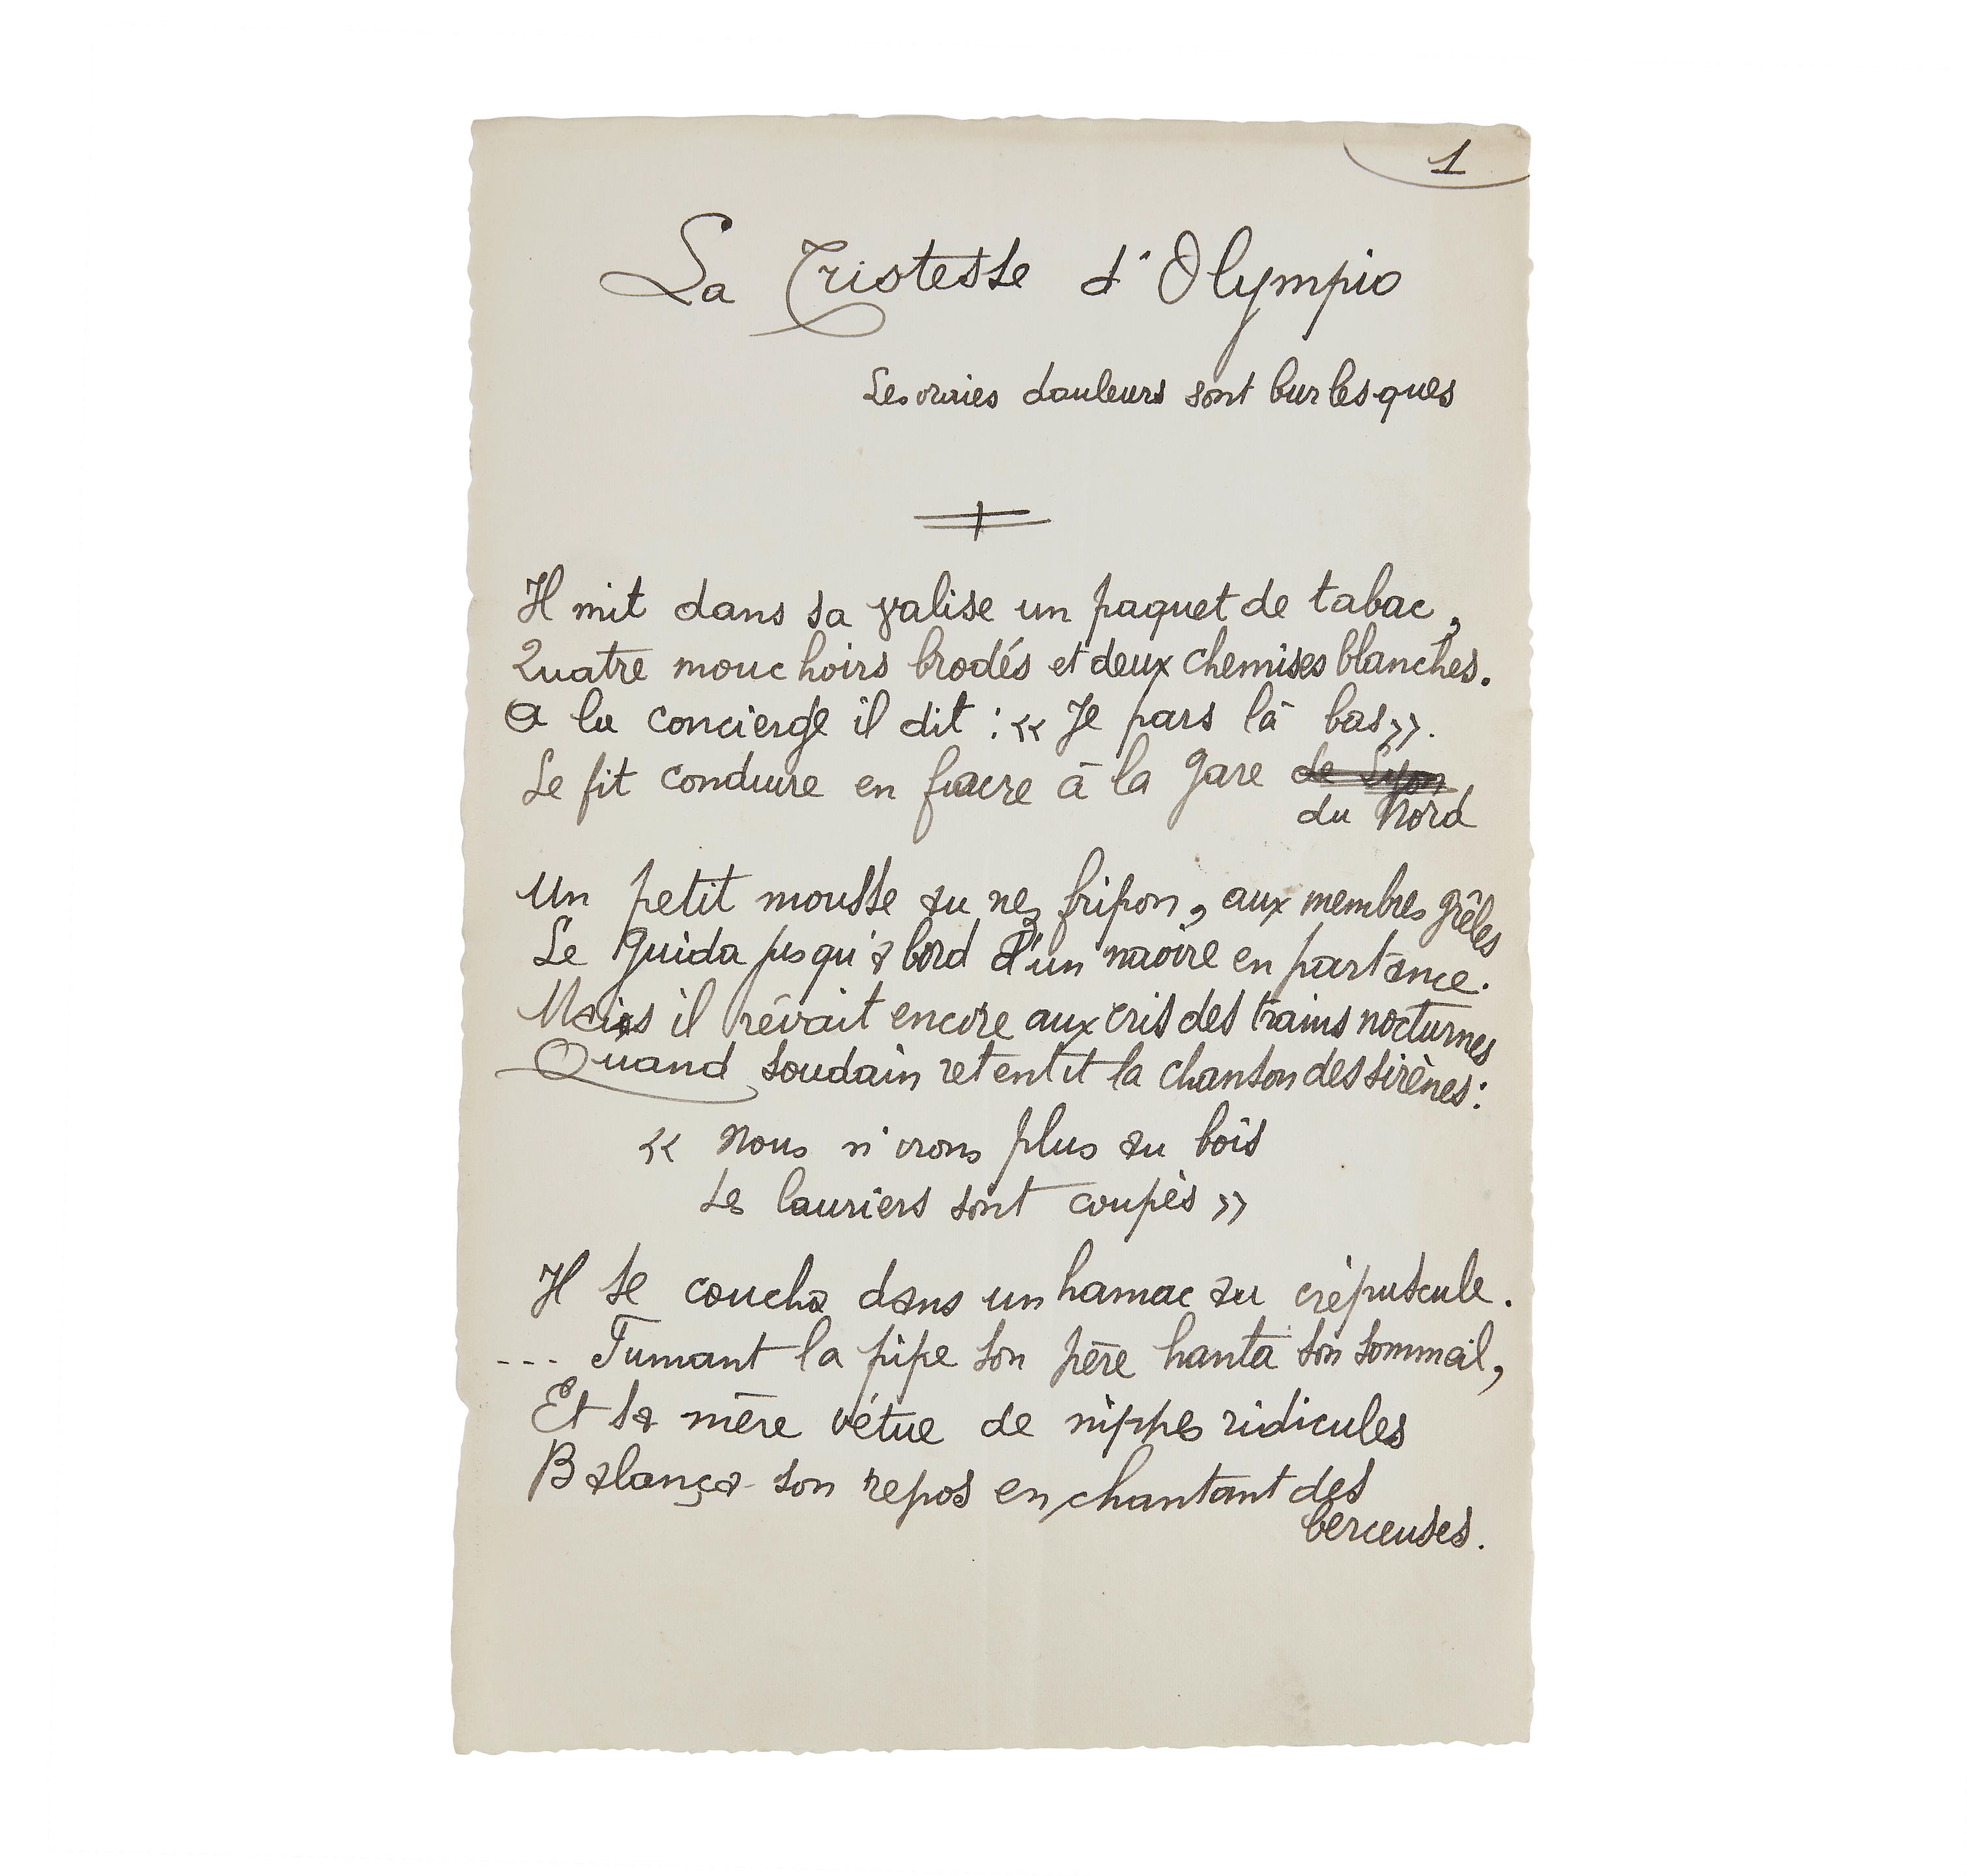 1
La Tristesse d'Olympio
Les vraies douleurs sont burlesques
Il mit dans sa valise un paquet de tabac,
Quatre mouchoirs brodés et deux chemises blanches.
A la concierge il dit : « Je pars là bas ».
Se fit conduire en fiacre à la gare de Lyon
du Nord
Un petit mousse au nez fripon, aux membres grêles
Le guida jusqu'à bord d'un navire en partance.
Mais il rêvait encore aux cris des trains nocturnes
Quand soudain retentit la chanson des sirènes :
« Nous n'irons plus au bois
Les lauriers sont coupés »
Il se coucha dans un hamac au crépuscule.
--- Fumant la pipe son père hanta son sommeil,
Et sa mère vétue de nippes ridicules
Balança son repos en chantant des
berceuses.